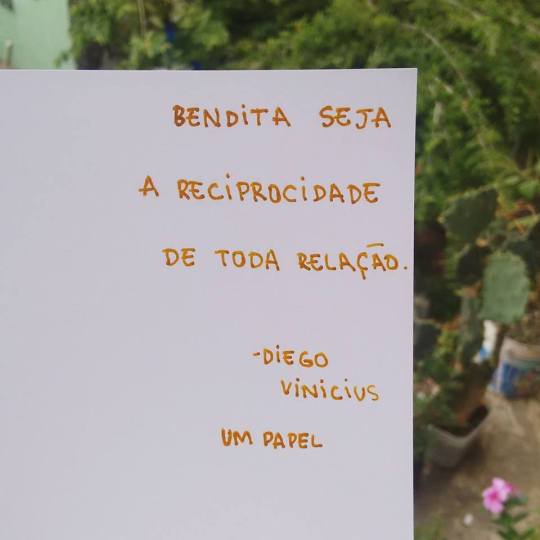 BENDITA SEJA
A RECIPROCIDADE
DE TODA RELAÇÃO.
-DIEGO
VINICIUS
UM PAPEL